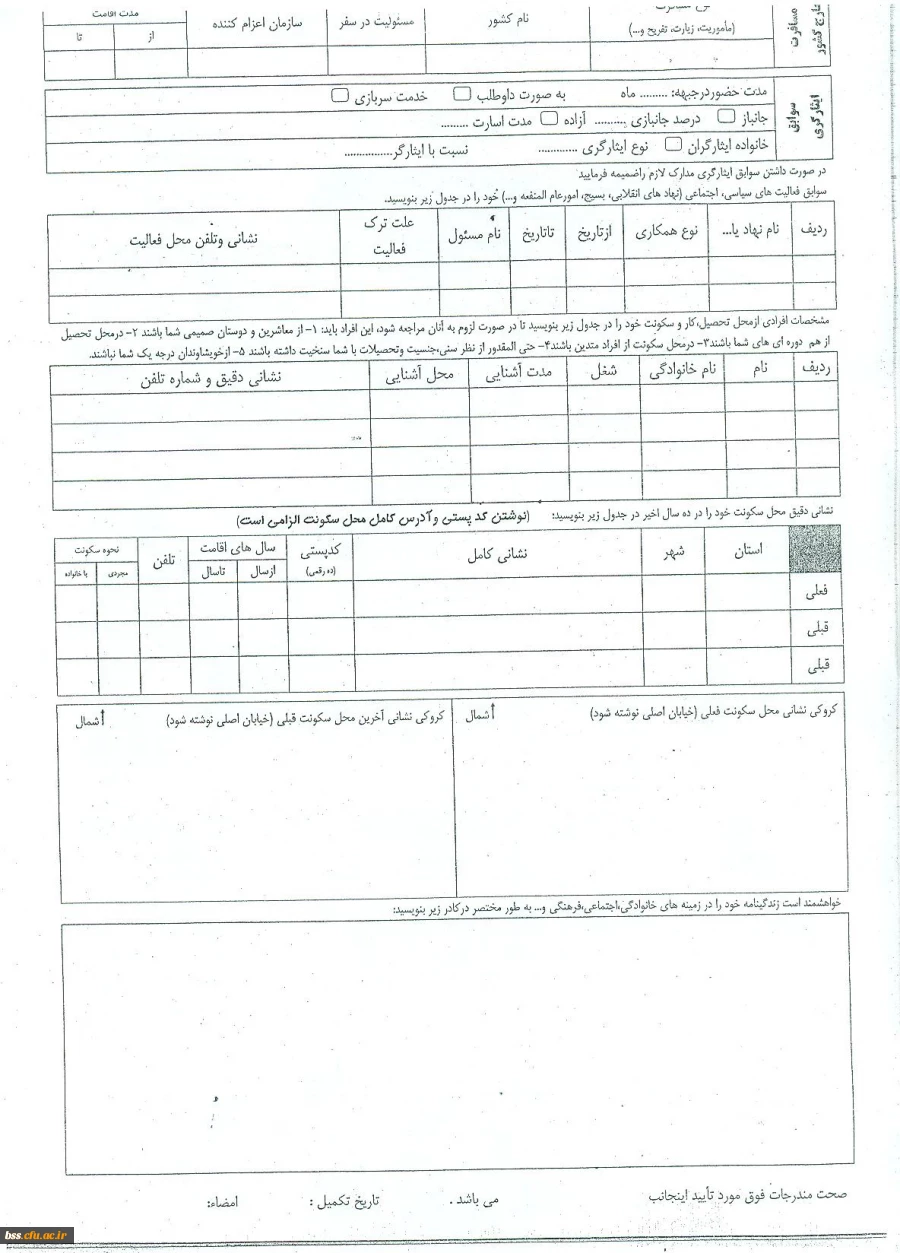 مسافرت خارج کشور
(ماموریت، زیارت، تفریح و...)
نام کشور
مسئولیت در سفر
سازمان اعزام کننده
مدت اقامت
از
تا
سوابق ایثارگری
مدت حضوردرجبهه: ......... ماه به صورت داوطلب خدمت سربازی
جانباز درصد جانبازی .......... آزاده مدت اسارت .........
خانواده ایثارگران نوع ایثارگری ............. نسبت با ایثارگر................
در صورت داشتن سوابق ایثارگری مدارک لازم راضمیمه فرمایید
سوابق فعالیت های سیاسی، اجتماعی (نهاد های انقلابی، بسیج، امورعام المنفعه و...) خود را در جدول زیر بنویسید.
ردیف
نام نهاد یا...
نوع همکاری
ازتاریخ
تاتاریخ
نام مسئول
علت ترک فعالیت
نشانی وتلفن محل فعالیت
مشخصات افرادی ازمحل تحصیل،کار و سکونت خود را در جدول زیر بنویسید تا در صورت لزوم به آنان مراجعه شود، این افراد باید: ۱- از معاشرین و دوستان صمیمی شما باشند ۲- درمحل تحصیل
از هم دوره ای های شما باشند۳- درمحل سکونت از افراد متدین باشند۴- حتی المقدور از نظر سنی،جنسیت وتحصیلات با شما سنخیت داشته باشند ۵- ازخویشاوندان درجه یک شما نباشند.
ردیف
نام
نام خانوادگی
شغل
مدت آشنایی
محل آشنایی
نشانی دقیق و شماره تلفن
نشانی دقیق محل سکونت خود را در ده سال اخیر در جدول زیر بنویسید: (نوشتن کد پستی و آدرس کامل محل سکونت الزامی است)
استان
شهر
نشانی کامل
کدپستی
(ده رقمی)
سال های اقامت
ازسال
تاسال
تلفن
نحوه سکونت
مجردی
با خانواده
فعلی
قبلی
قبلی
کروکی نشانی محل سکونت فعلی (خیابان اصلی نوشته شود) شمال
کروکی نشانی آخرین محل سکونت قبلی (خیابان اصلی نوشته شود) شمال
خواهشمند است زندگینامه خود را در زمینه های خانوادگی،اجتماعی،فرهنگی و... به طور مختصر درکادر زیر بنویسید:
صحت مندرجات فوق مورد تأیید اینجانب می باشد . تاریخ تکمیل : امضاء:
bss.cfu.ac.ir